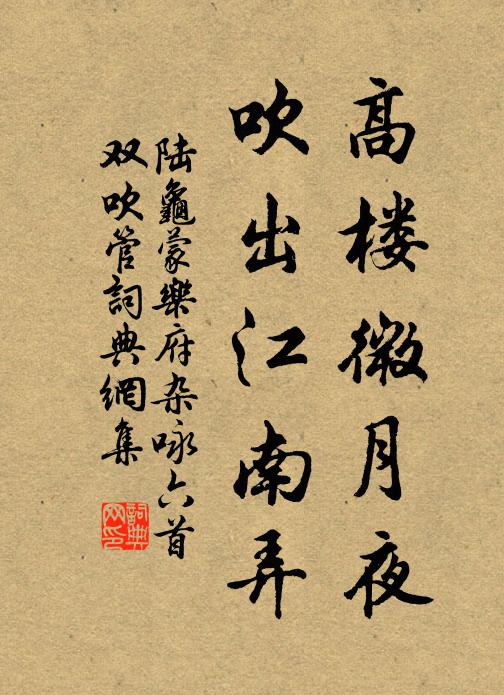 高楼微月夜
吹出江南弄
陆龜蒙樂府杂咏六首
双吹管詞典網集
詞典
网印